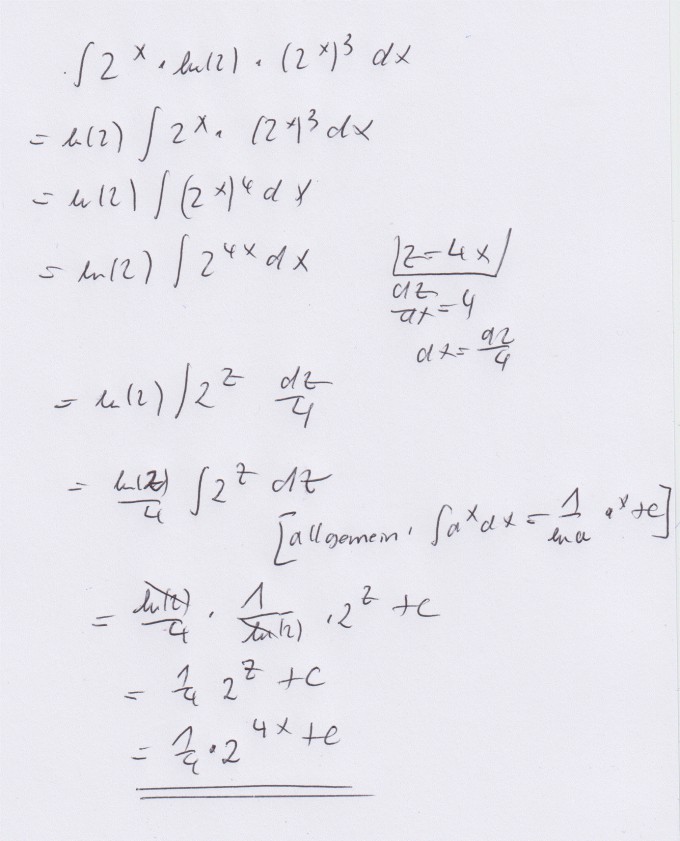 ∫ 2^x · ln(2) · (2^x)^3 dx
= ln(2) ∫ 2^x · (2^x)^3 dx
= ln(2) ∫ (2^x)^4 dx
= ln(2) ∫ 2^{4x} dx
z = 4x
dz/dx = 4
dx = dz/4
= ln(2) ∫ 2^z dz/4
= ln(2)/4 ∫ 2^z dz
[allgemein: ∫ a^x dx = 1/ln a · a^x + C]
= ln(2)/4 · 1/ln(2) · 2^z + C
= 1/4 2^z + C
= 1/4 · 2^{4x} + C